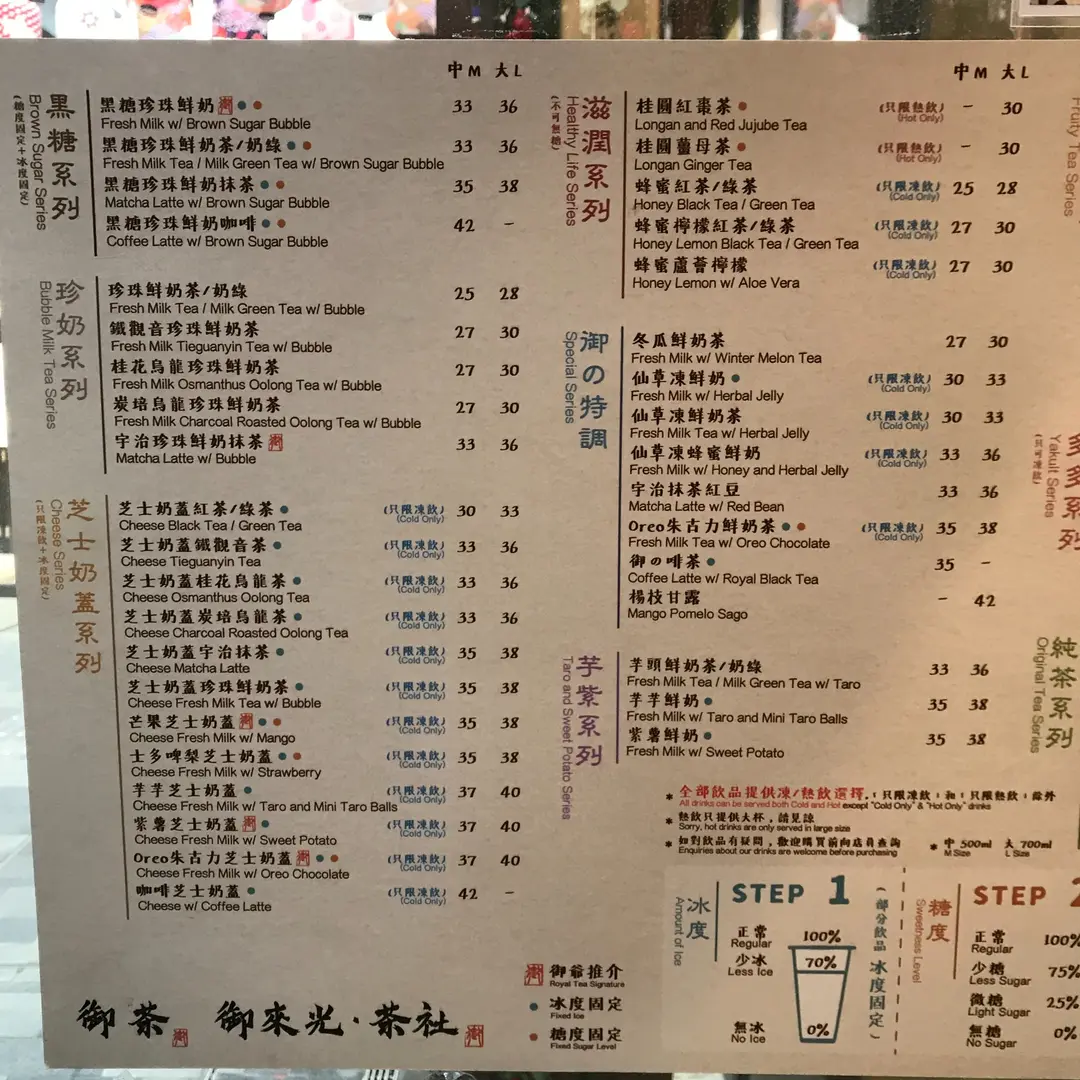 中M 大L
黑糖系列
Brown Sugar Series
(糖度固定+冰度固定)
黑糖珍珠鮮奶 33 36
Fresh Milk w/ Brown Sugar Bubble
黑糖珍珠鮮奶茶/奶綠 33 36
Fresh Milk Tea / Milk Green Tea w/ Brown Sugar Bubble
黑糖珍珠鮮奶抹茶 35 38
Matcha Latte w/ Brown Sugar Bubble
黑糖珍珠鮮奶咖啡 42 -
Coffee Latte w/ Brown Sugar Bubble
珍奶系列
Bubble Milk Tea Series
珍珠鮮奶茶/奶綠 25 28
Fresh Milk Tea / Milk Green Tea w/ Bubble
鐵觀音珍珠鮮奶茶 27 30
Fresh Milk Tieguanyin Tea w/ Bubble
桂花烏龍珍珠鮮奶茶 27 30
Fresh Milk Osmanthus Oolong Tea w/ Bubble
炭培烏龍珍珠鮮奶茶 27 30
Fresh Milk Charcoal Roasted Oolong Tea w/ Bubble
宇治珍珠鮮奶抹茶 33 36
Matcha Latte w/ Bubble
芝士奶蓋系列
Cheese Series
(只限凍飲+冰度固定)
芝士奶蓋紅茶/綠茶 (只限凍飲) 30 33
Cheese Black Tea / Green Tea (Cold Only)
芝士奶蓋鐵觀音茶 (只限凍飲) 33 36
Cheese Tieguanyin Tea (Cold Only)
芝士奶蓋桂花烏龍茶 (只限凍飲) 33 36
Cheese Osmanthus Oolong Tea (Cold Only)
芝士奶蓋炭培烏龍茶 (只限凍飲) 33 36
Cheese Charcoal Roasted Oolong Tea (Cold Only)
芝士奶蓋宇治抹茶 (只限凍飲) 35 38
Cheese Matcha Latte (Cold Only)
芝士奶蓋珍珠鮮奶茶 (只限凍飲) 35 38
Cheese Fresh Milk Tea w/ Bubble (Cold Only)
芒果芝士奶蓋 (只限凍飲) 35 38
Cheese Fresh Milk w/ Mango (Cold Only)
士多啤梨芝士奶蓋 (只限凍飲) 35 38
Cheese Fresh Milk w/ Strawberry (Cold Only)
芋芋芝士奶蓋 (只限凍飲) 37 40
Cheese Fresh Milk w/ Taro and Mini Taro Balls (Cold Only)
紫薯芝士奶蓋 (只限凍飲) 37 40
Cheese Fresh Milk w/ Sweet Potato (Cold Only)
Oreo朱古力芝士奶蓋 (只限凍飲) 37 40
Cheese Fresh Milk w/ Oreo Chocolate (Cold Only)
咖啡芝士奶蓋 (只限凍飲) 42 -
Cheese w/ Coffee Latte (Cold Only)
御茶 御來光·茶社
御爺推介
Royal Tea Signature
冰度固定
Fixed Ice
糖度固定
Fixed Sugar Level
中M 大L
滋潤系列
Healthy Life Series
(不可無糖)
桂圓紅棗茶 (只限熱飲) - 30
Longan and Red Jujube Tea (Hot Only)
桂圓薑母茶 (只限熱飲) - 30
Longan Ginger Tea (Hot Only)
蜂蜜紅茶/綠茶 (只限凍飲) 25 28
Honey Black Tea / Green Tea (Cold Only)
蜂蜜檸檬紅茶/綠茶 (只限凍飲) 27 30
Honey Lemon Black Tea / Green Tea (Cold Only)
蜂蜜蘆薈檸檬 (只限凍飲) 27 30
Honey Lemon w/ Aloe Vera (Cold Only)
御の特調
Special Series
冬瓜鮮奶茶 27 30
Fresh Milk w/ Winter Melon Tea
仙草凍鮮奶 (只限凍飲) 30 33
Fresh Milk w/ Herbal Jelly (Cold Only)
仙草凍鮮奶茶 (只限凍飲) 30 33
Fresh Milk Tea w/ Herbal Jelly (Cold Only)
仙草凍蜂蜜鮮奶 (只限凍飲) 33 36
Fresh Milk w/ Honey and Herbal Jelly (Cold Only)
宇治抹茶紅豆 33 36
Matcha Latte w/ Red Bean
Oreo朱古力鮮奶茶 (只限凍飲) 35 38
Fresh Milk Tea w/ Oreo Chocolate (Cold Only)
御の啡茶 35 -
Coffee Latte w/ Royal Black Tea
楊枝甘露 - 42
Mango Pomelo Sago
芋紫系列
Taro and Sweet Potato Series
芋頭鮮奶茶/奶綠 33 36
Fresh Milk Tea / Milk Green Tea w/ Taro
芋芋鮮奶 35 38
Fresh Milk w/ Taro and Mini Taro Balls
紫薯鮮奶 35 38
Fresh Milk w/ Sweet Potato
* 全部飲品提供凍/熱飲選擇,(只限凍飲)和(只限熱飲)除外
All drinks can be served both Cold and Hot except "Cold Only" & "Hot Only" drinks
* 熱飲只提供大杯,請見諒
Sorry, hot drinks are only served in large size
* 如對飲品有疑問,歡迎購買前向店員查詢 * 中 500ml 大 700ml
Enquiries about our drinks are welcome before purchasing M Size L Size
冰度
Amount of Ice
STEP 1
正常 100%
Regular
少冰 70%
Less Ice
無冰 0%
No Ice
(部分飲品冰度固定)
糖度
Sweetness Level
STEP 2
正常 100%
Regular
少糖 75%
Less Sugar
微糖 25%
Light Sugar
無糖 0%
No Sugar
Fruity Tea Series
多多系列
Yakult Series
(只可凍飲)
純茶系列
Original Tea Series